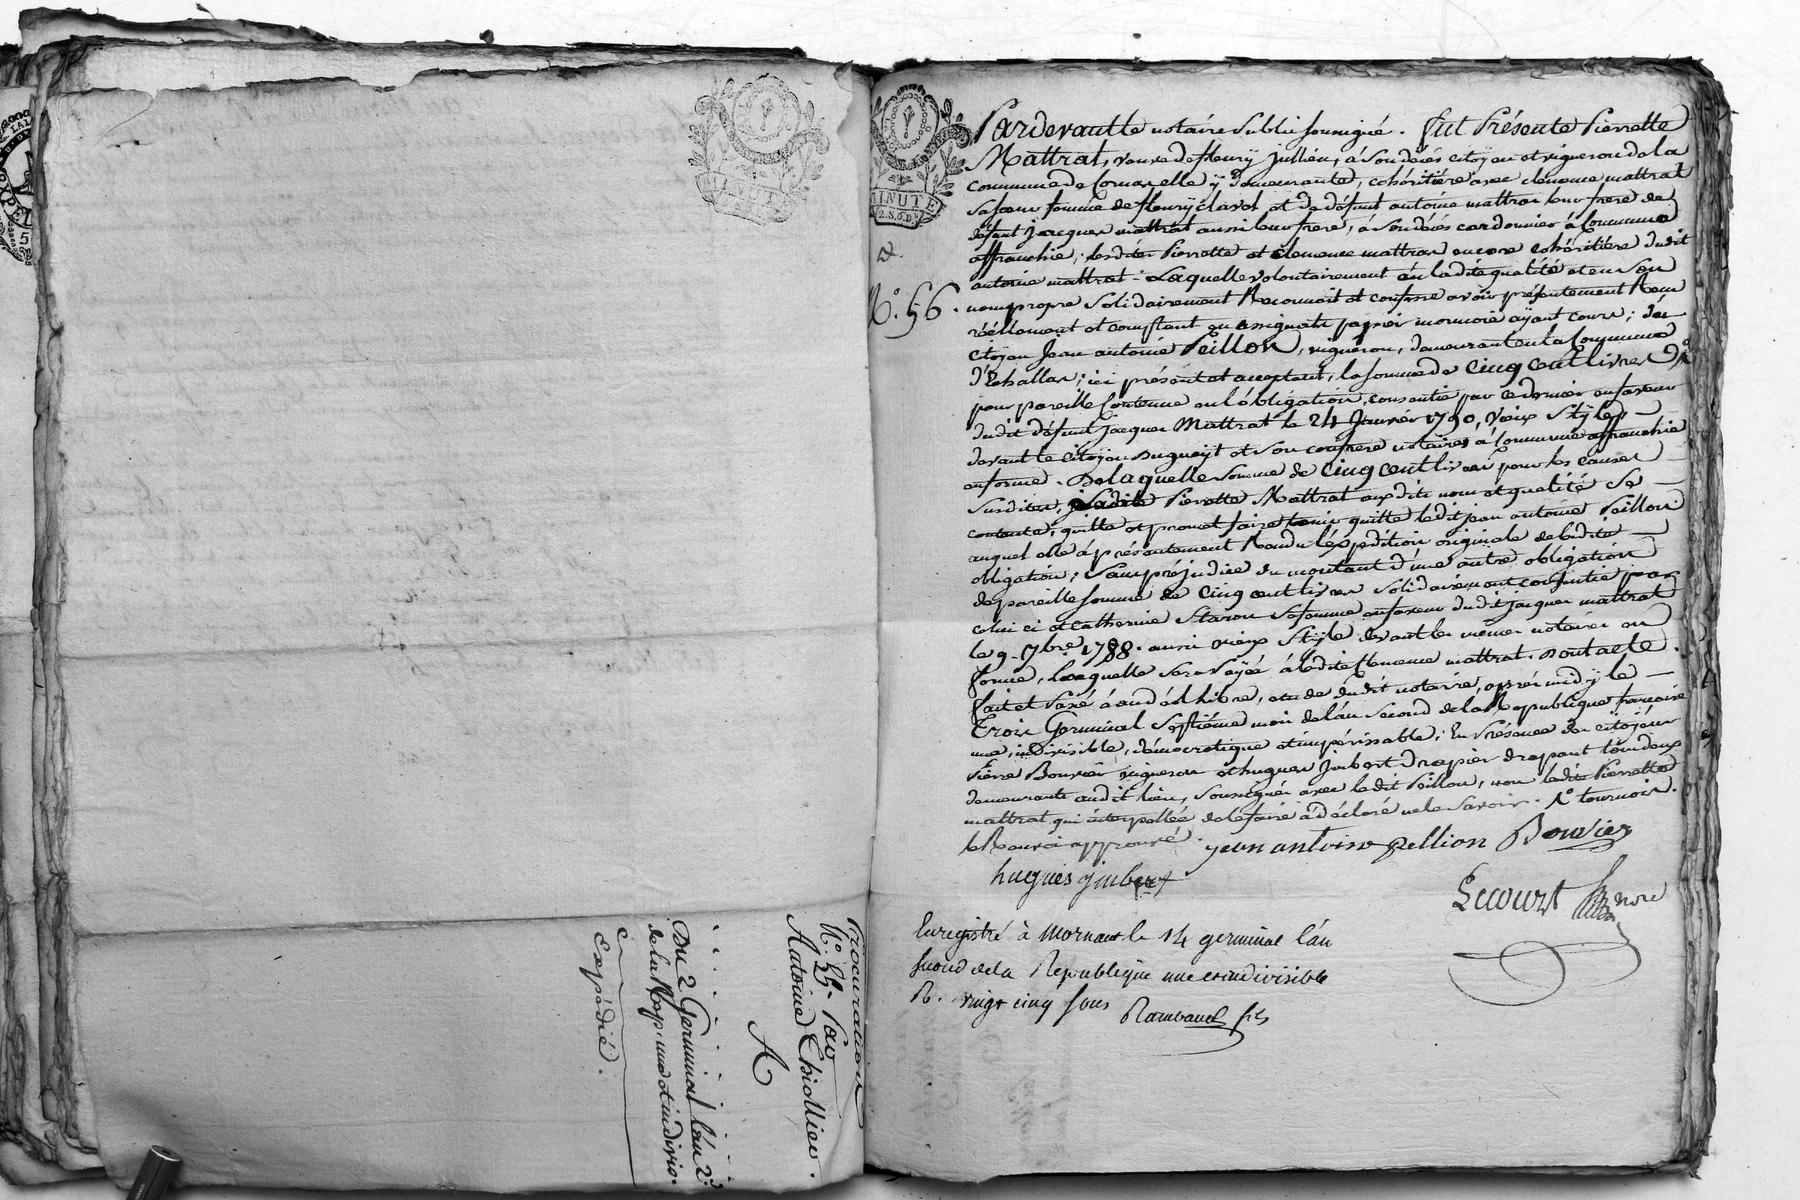 Procuration
N.° 55. Par
Antoine Thiollier.
A
Du 2 Germinal l'an 2.d
de la Rép. une et indivis.
Expédié.
MINUTE
2.S.6.D.
N.° 56.
Pardevant le notaire Public soussigné. fut Présente Pierrette
Mattrat, veuve de fleurÿ jullien, à son décès citoÿen et vigneron de la
commune de Cornavelle ÿ demeurante, cohéritière avec clemence mattrat
sa sœur femme de fleurÿ clavel et de défunt antoine mattrat leur frere de
défunt jacques mattrat aussi leur frere, à son décès cordonnier à Commune
affranchie; lesdites Pierrette et clemence mattrat encore cohéritière dudit
antoine mattrat. Laquelle volontairement én ladite qualité et en son
nom propre solidairement Reconnoit et confesse avoir présentement Reçu
réellement et comptant en assignats papier monnoie aÿant cours; du
citoÿen Jean antoine Peillon, vigneron, demeurant en la Commune
d'Echallas; ici présent et acceptant, la somme de cinq cent livres
pour pareille Contenue en l'obligation consentie par ce dernier en faveur
dudit défunt jacques Mattrat le 24 Janvier 1790, vieux stÿle,
devant le citoÿen Dugueyt et son confrere notaires à Commune affranchie
en forme. De laquelle somme de cinq cent livres pour les causes
susdites, ladite Pierrette Mattrat auxdits nom et qualité se
contente, quitte et promet faire tenir quitte ledit jean antoine Peillon
auquel elle à présentement Rendu l'éxpédition originale de ladite
obligation; sans préjudice du montant d'une autre obligation
de pareille somme de cinq cent livres solidairement consentie par
celui ci et catherine Staron sa femme en faveur dudit jacques mattrat
le 9. 7bre 1788. aussi vieux stÿle devant les mêmes notaires en
forme, Laquelle sera Païée à ladite Clemence mattrat. Dont acte
fait et Passé à andéol libre, étude dudit notaire, après midÿ le
Trois Germinal septième mois de l'an second de la République francaise
une, indivisible, démocratique et impérissable; En Présence des citoÿens
Pierre Bouvier vigneron et hugues Jmbert drapier drapant tous deux
demeurants audit lieu, soussignés avec ledit Peillon, non ladite Pierrette
mattrat qui interpellée de le faire à déclaré ne le savoir.
le Renvoi approuvé. jean antoine pellion Bouvier
hugues ymbert
Lecourt nore
Enregistré à Mornant le 14 germinal l'an
second de la Republique une et indivisible
R. vingt cinq sous Rambaud fils